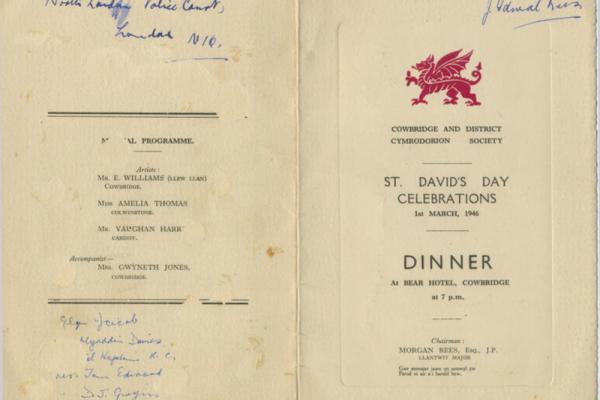 North London Police Court,
London N.10.
M AL PROGRAMME.
Artists:
MR. E. WILLIAMS (LLEW LLAN)
COWBRIDGE.
MISS AMELIA THOMAS
COLWINSTONE.
MR. VAUGHAN HARR
CARDIFF.
Accompanist—
MRS. GWYNETH JONES,
COWBRIDGE.
Jacob
Myrddin Davies
K.C.
Edward
D.J.
J. Idwal Rees
COWBRIDGE AND DISTRICT
CYMRODORION SOCIETY
ST. DAVID'S DAY
CELEBRATIONS
1st MARCH, 1946
DINNER
At BEAR HOTEL, COWBRIDGE
at 7 p.m.
Chairman:
MORGAN REES, Esq., J.P.
LLANTWIT MAJOR